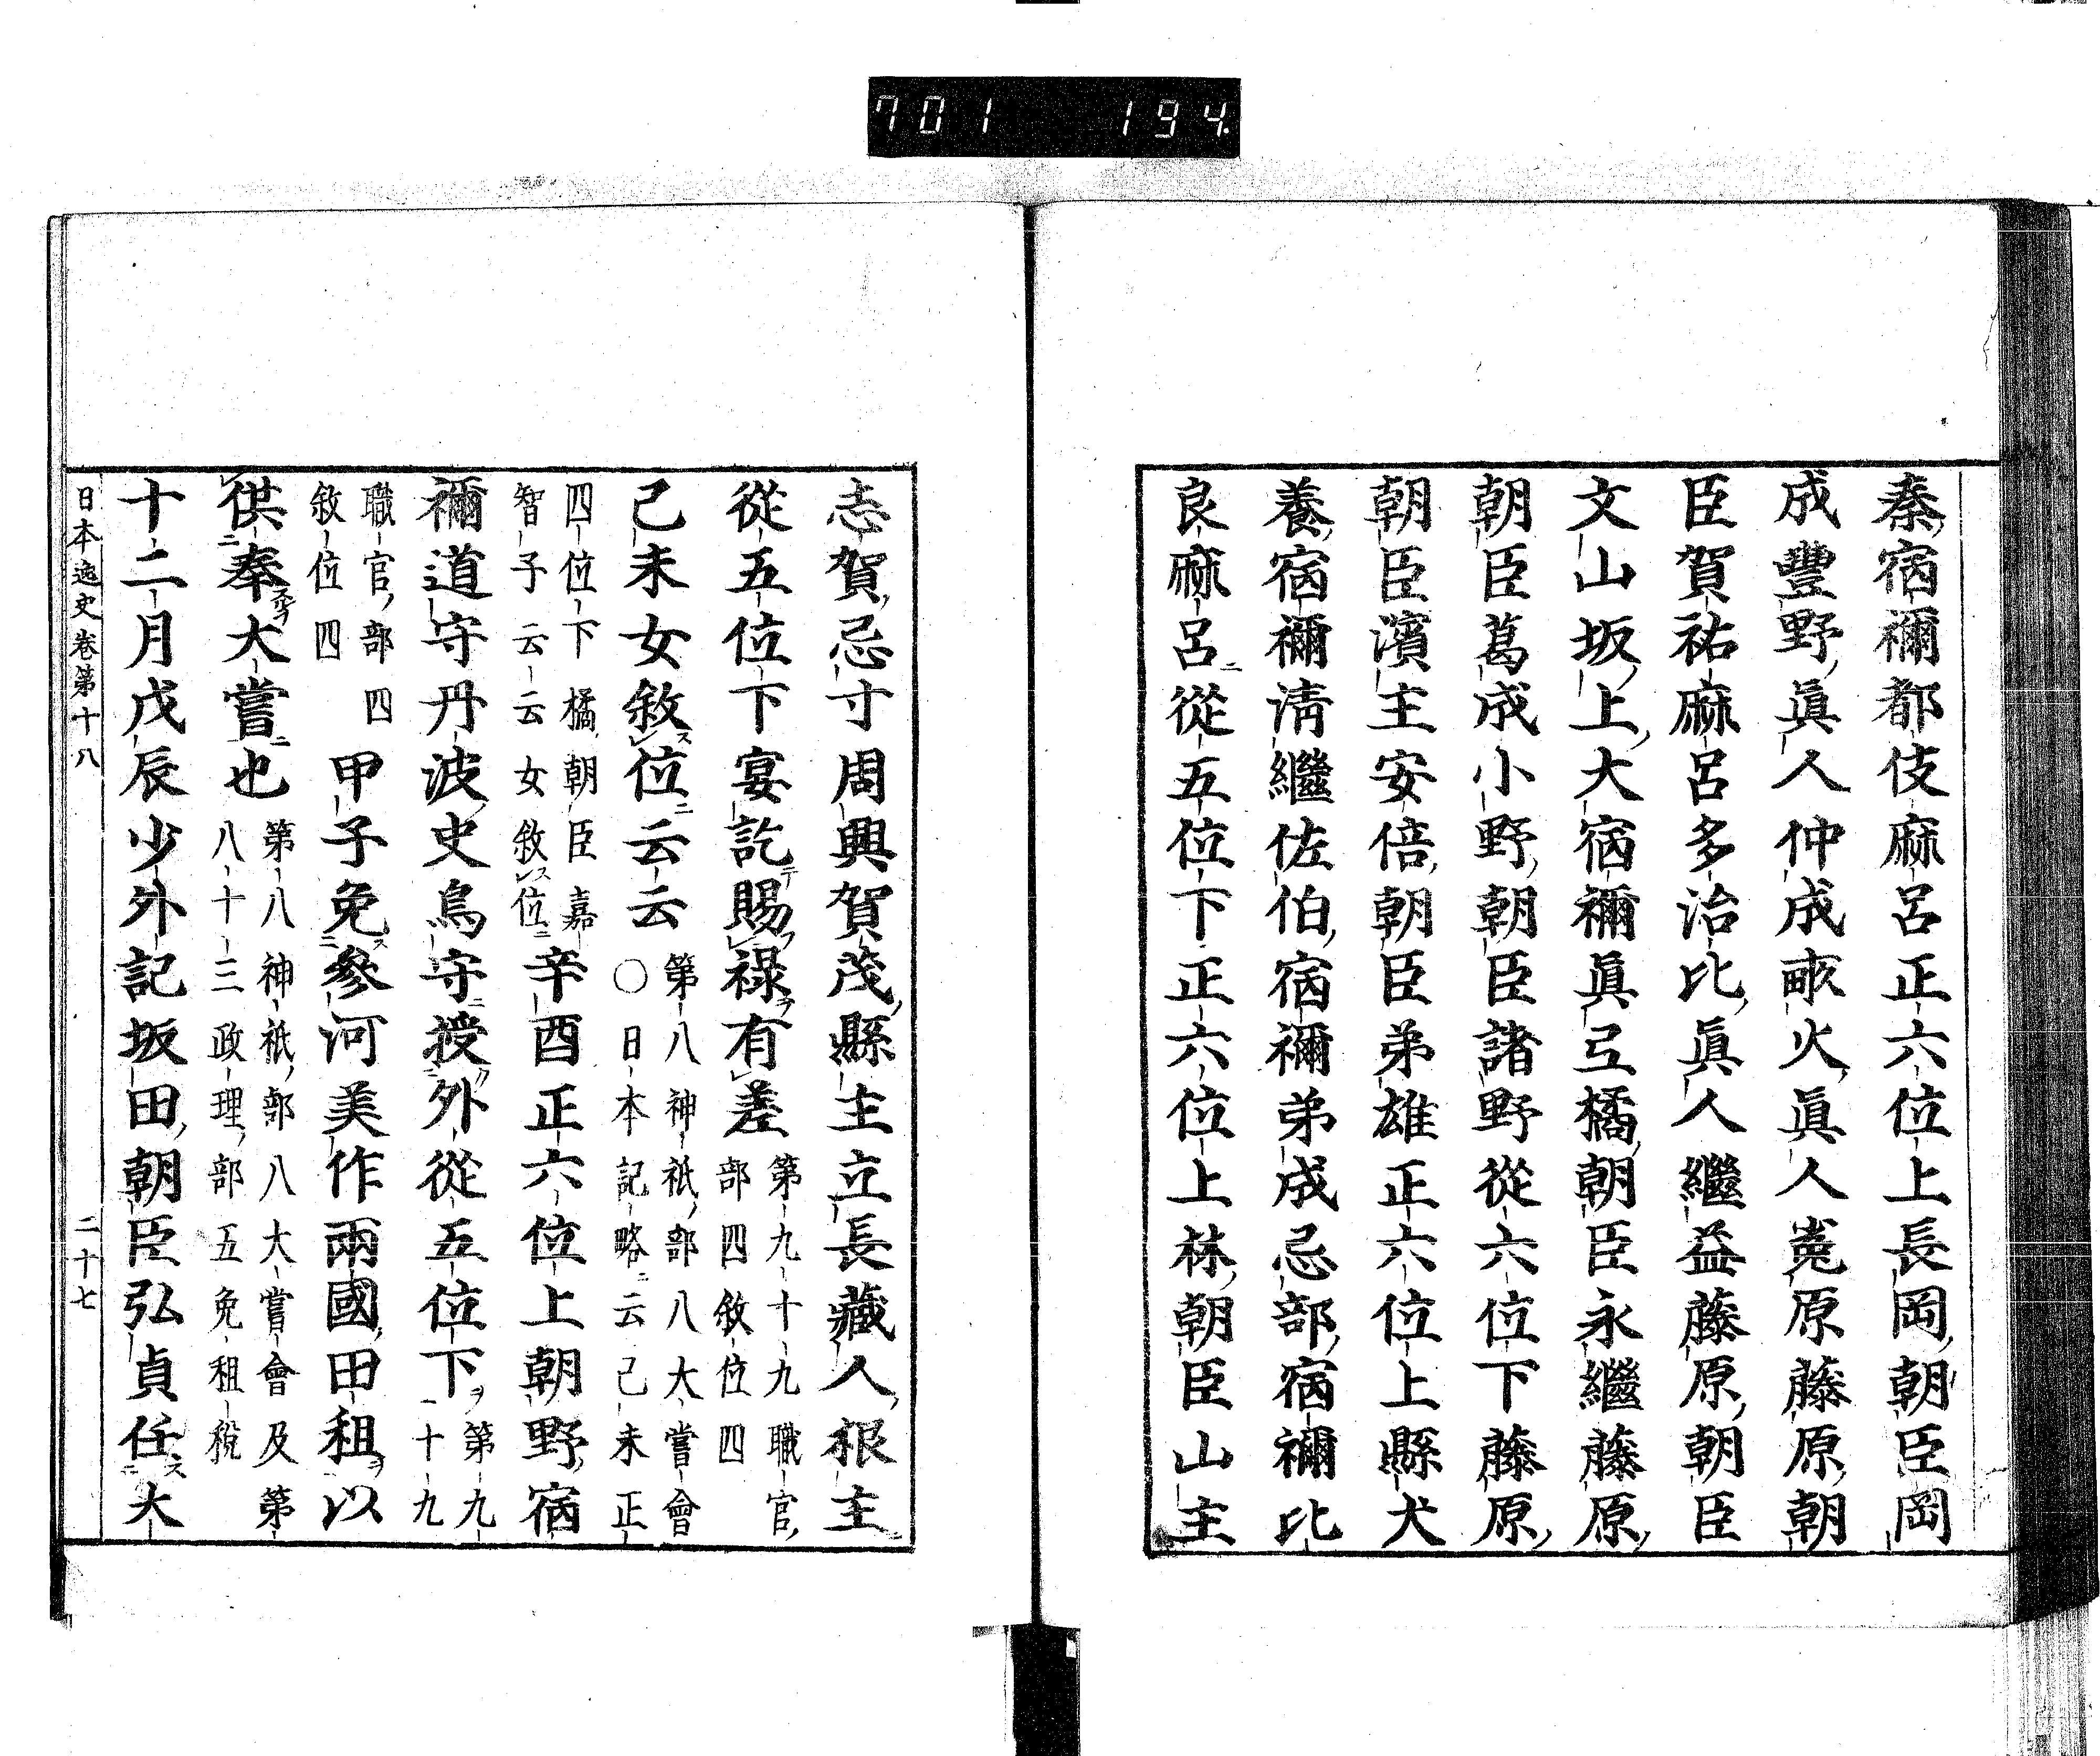 701 194
秦宿禰都伎麻呂正六位上長岡朝臣岡
成豐野眞人仲成畝火眞人菟原藤原朝
臣賀祐麻呂多治比眞人繼益藤原朝臣
文山坂上大宿禰眞弖橘朝臣永繼藤原
朝臣葛成小野朝臣諸野從六位下藤原
朝臣濱主安倍朝臣弟雄正六位上縣犬
養宿禰淸繼佐伯宿禰弟成忌部宿禰比
良麻呂從五位下正六位上林朝臣山主
志賀忌寸周興賀茂縣主立長藏人根主
從五位下宴訖賜祿有差第九十九職官部四敘位四
己未女敘位云云第八神祇部八大嘗會〇日本記略云己未正
四位下橘朝臣嘉智子云云女敘位辛酉正六位上朝野宿
禰道守丹波史鳥守授外從五位下第九十九
職官部四敘位四甲子免參河美作兩國田租以
供奉大嘗也第八神祇部八大嘗會及第八十三政理部五免租稅
十二月戊辰少外記坂田朝臣弘貞任大
日本逸史卷第十八 二十七